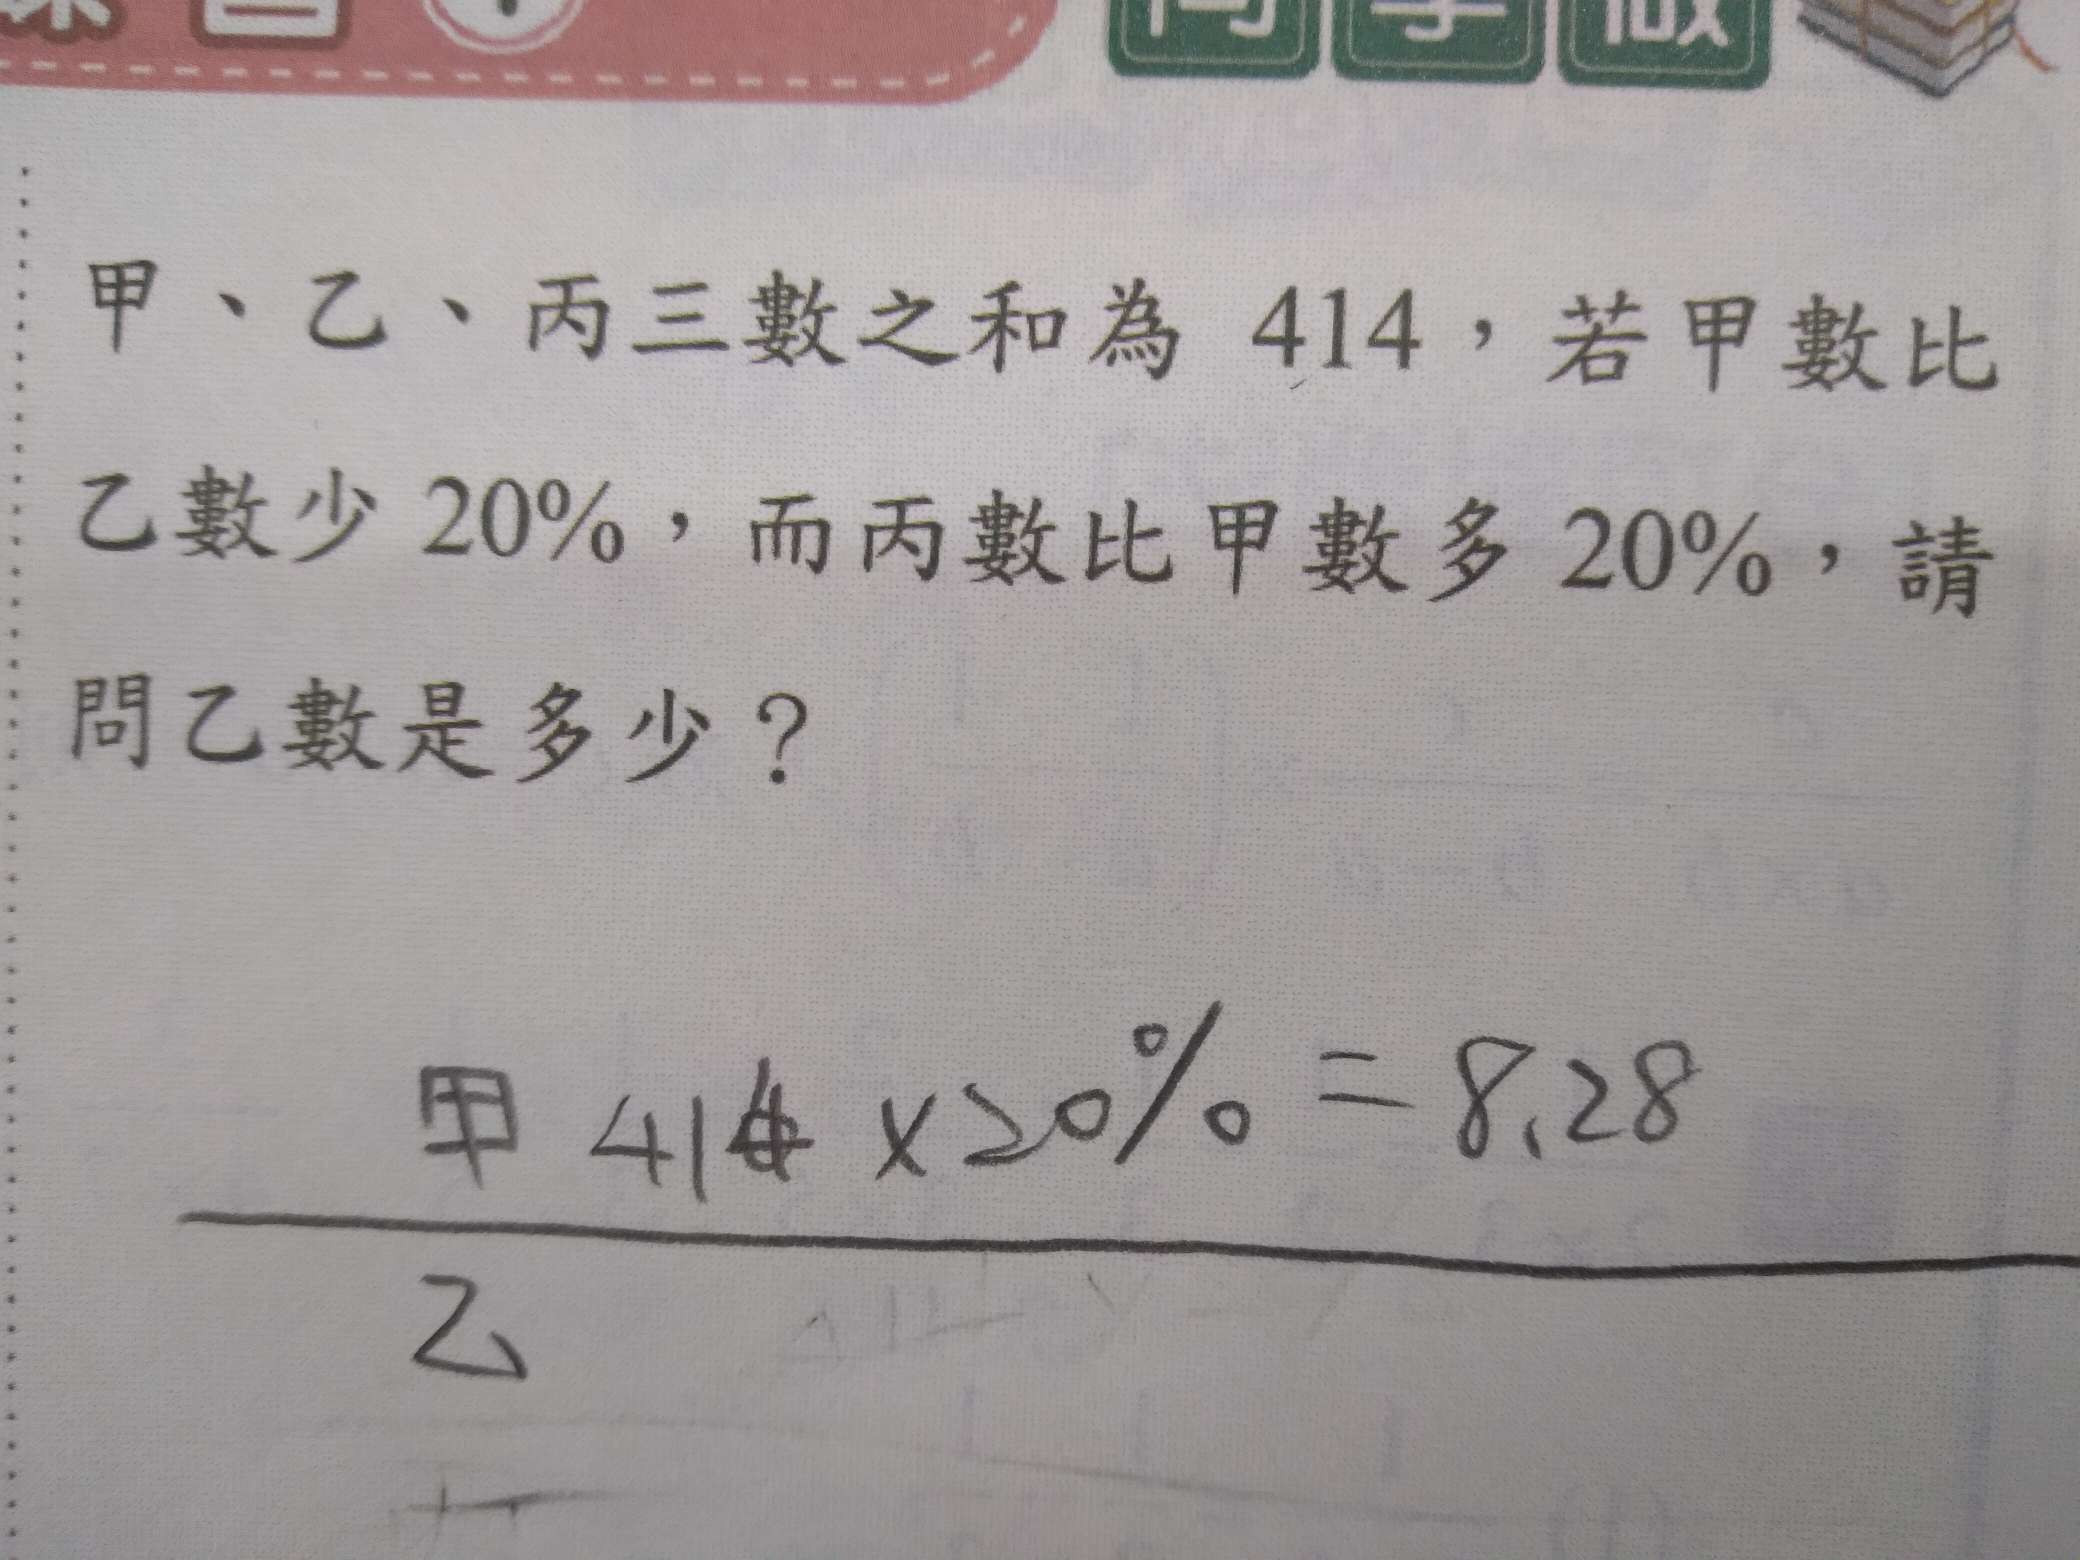 甲、乙、丙三數之和為 414，若甲數比
乙數少 20%，而丙數比甲數多 20%，請
問乙數是多少？
甲 414 ×20% = 8.28
乙